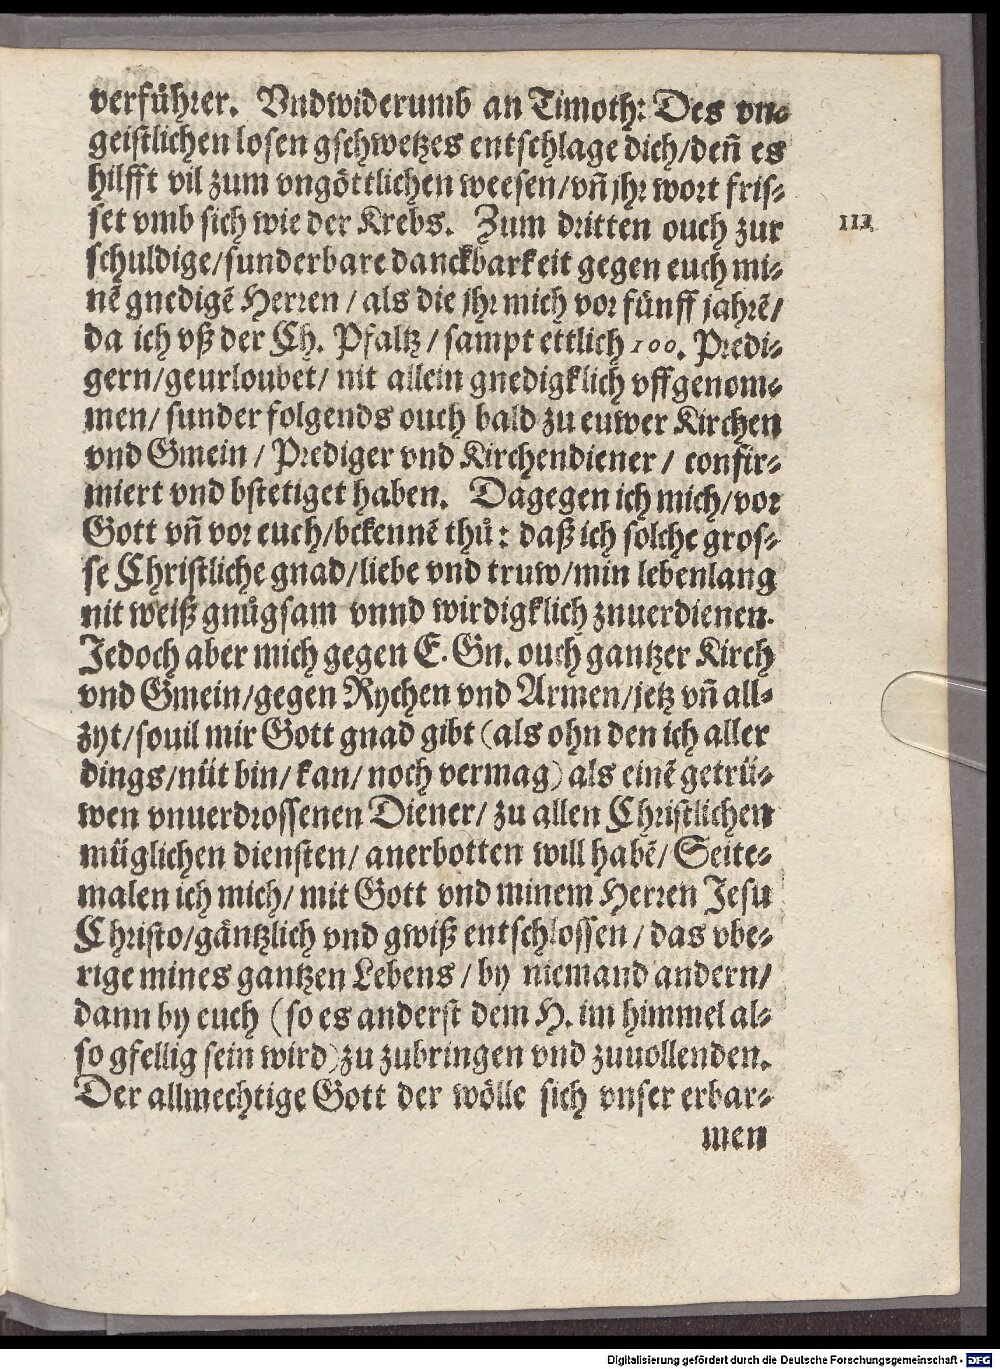 verfůhrer. Vnd widerumb an Timoth: Des vn⸗
geistlichen losen gschwetzes entschlage dich/deñ es
hilfft vil zum vngöttlichen weesen/vñ jhr wort fris⸗
set vmb sich wie der Krebs. Zum dritten ouch zur
III.
schuldige/sunderbare danckbarkeit gegen euch mi⸗
nẽ gnedigẽ Herren / als die jhr mich vor fünff jahrẽ/
da ich vß der Ch. Pfaltz / sampt ettlich 100. Predi⸗
gern/geurloubet/ nit allein gnedigklich vffgenom⸗
men/ sunder folgends ouch bald zu euwer Kirchen
vnd Gmein / Prediger vnd Kirchendiener / confir⸗
miert vnd bstetiget haben. Dagegen ich mich/vor
Gott vñ vor euch/bekennẽ thů: daß ich sölche gros⸗
se Christliche gnad/liebe vnd truw/min lebenlang
nit weiß gnůgsam vnnd wirdigklich znuerdienen.
Jedoch aber mich gegen E. Gn. ouch gantzer Kirch
vnd Gmein/gegen Rychen vnd Armen/jetz vñ all⸗
zyt/souil mir Gott gnad gibt (als ohn den ich aller
dings/nüt bin/kan/noch vermag) als einẽ getrü⸗
wen vnuerdrossenen Diener/ zu allen Christlichen
müglichen diensten/ anerbotten will habẽ/ Seite⸗
malen ich mich/ mit Gott vnd minem Herren Jesu
Christo/gäntzlich vnd gwiß entschlossen / das vbe⸗
rige mines gantzen Lebens / by niemand andern/
dann by euch (so es anderst dem H. im himmel al⸗
so gfellig sein wird) zu zubringen vnd zuuollenden.
Der allmechtige Gott der wölle sich vnser erbar⸗
men
Digitalisierung gefördert durch die Deutsche Forschungsgemeinschaft - DFG